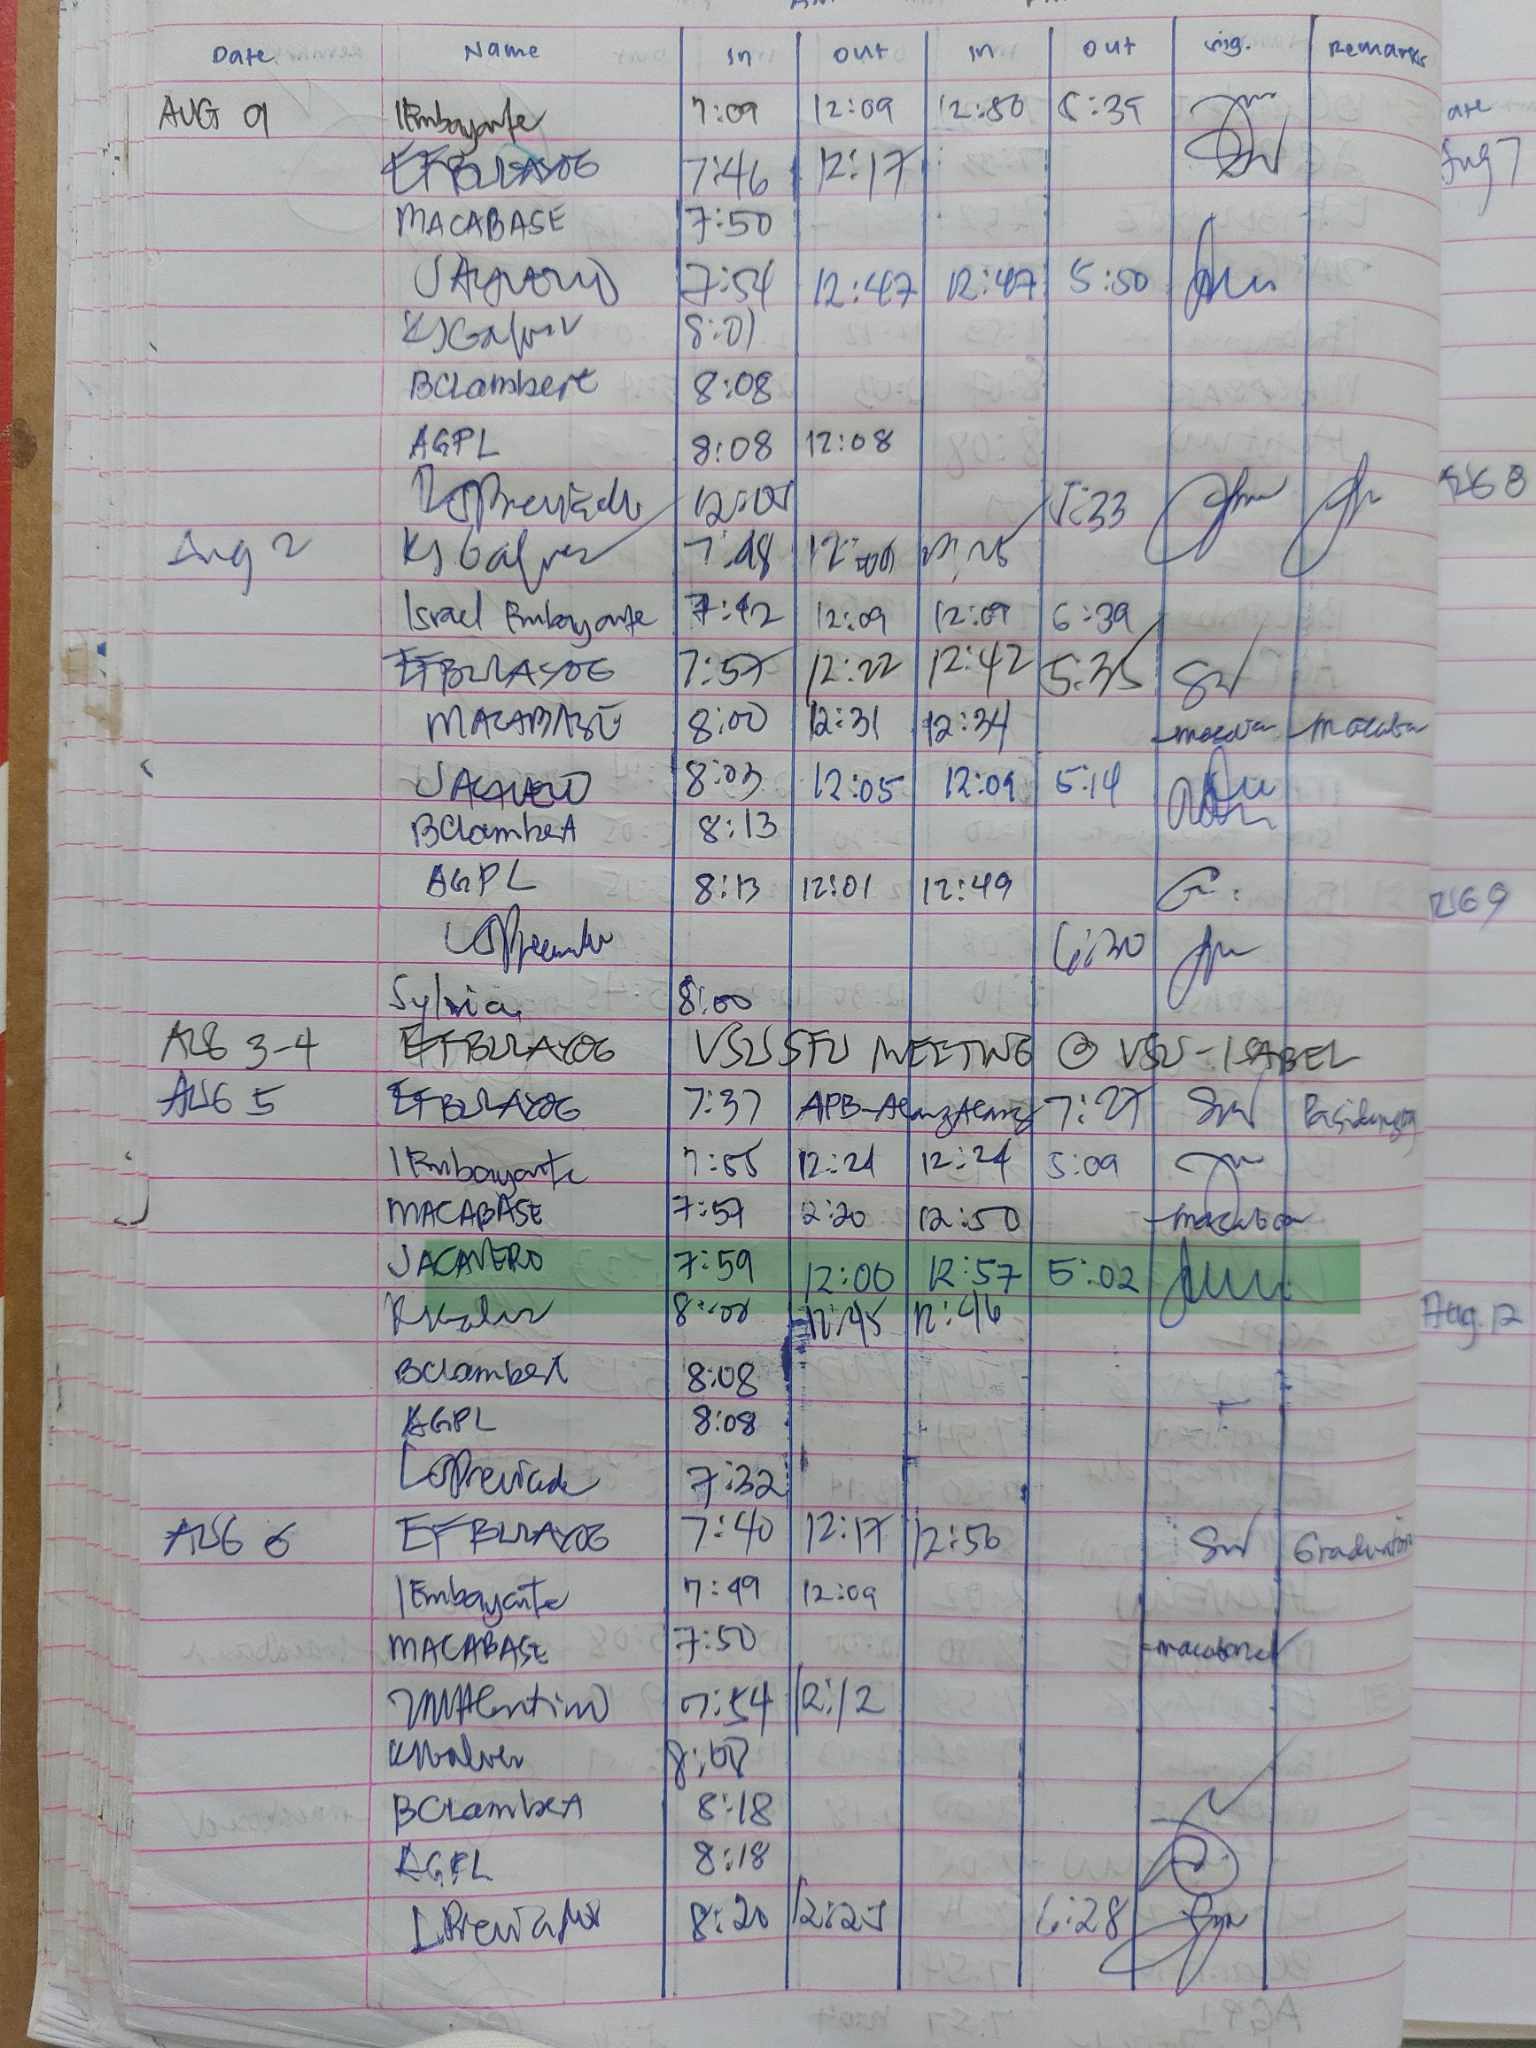 Date Name In Out In Out sig. Remarks
AUG 01 IEmbayante 7:09 12:09 12:50 5:39
EFBURAYOG 7:46 12:17
MACABASE 7:50
JACAVERO 7:54 12:47 12:47 5:50
KJGalvez 8:01
BCLambert 8:08
AGPL 8:08 12:08
LGPreciado 5:33
Aug 2 KJ Galvez 7:48
Israel Embayante 7:42 12:09 12:09 6:39
EFBURAYOG 7:57 12:22 12:42 5:35
MACABASE 8:00 12:31 12:34
JACAVERO 8:03 12:05 12:09 5:14
BCLambert 8:13
AGPL 8:13 12:01 12:49
6:30
Sylvia 8:00
AUG 3-4 EFBURAYOG VSU SFU MEETING @ VSU-ISABEL
AUG 5 EFBURAYOG 7:37 APB-AlangAlang 7:27
IEmbayante 7:55 12:24 12:24 5:09
MACABASE 7:57 12:20 12:50
JACAVERO 7:59 12:00 12:57 5:02
8:00 12:45 12:46
BCLambert 8:08
AGPL 8:08
LGPreciado 7:32
AUG 6 EFBURAYOG 7:40 12:17 12:56 Graduation
IEmbayante 7:49 12:09
MACABASE 7:50
7:54 12:12
KJGalvez
BCLambert 8:18
AGPL 8:18
8:20 12:25 6:28
Aug 7
AUG 8
AUG 9
Aug. 12